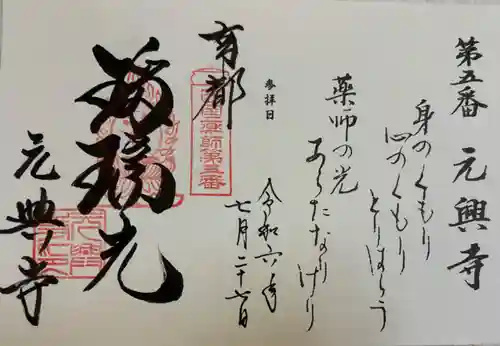 第五番 元興寺
身のくもり
心のくもり
とりはらう
薬師の光
あらたなりけり
参拝日
令和六年
七月二十六日
南都
西国薬師第五番
瑠璃光
元興寺